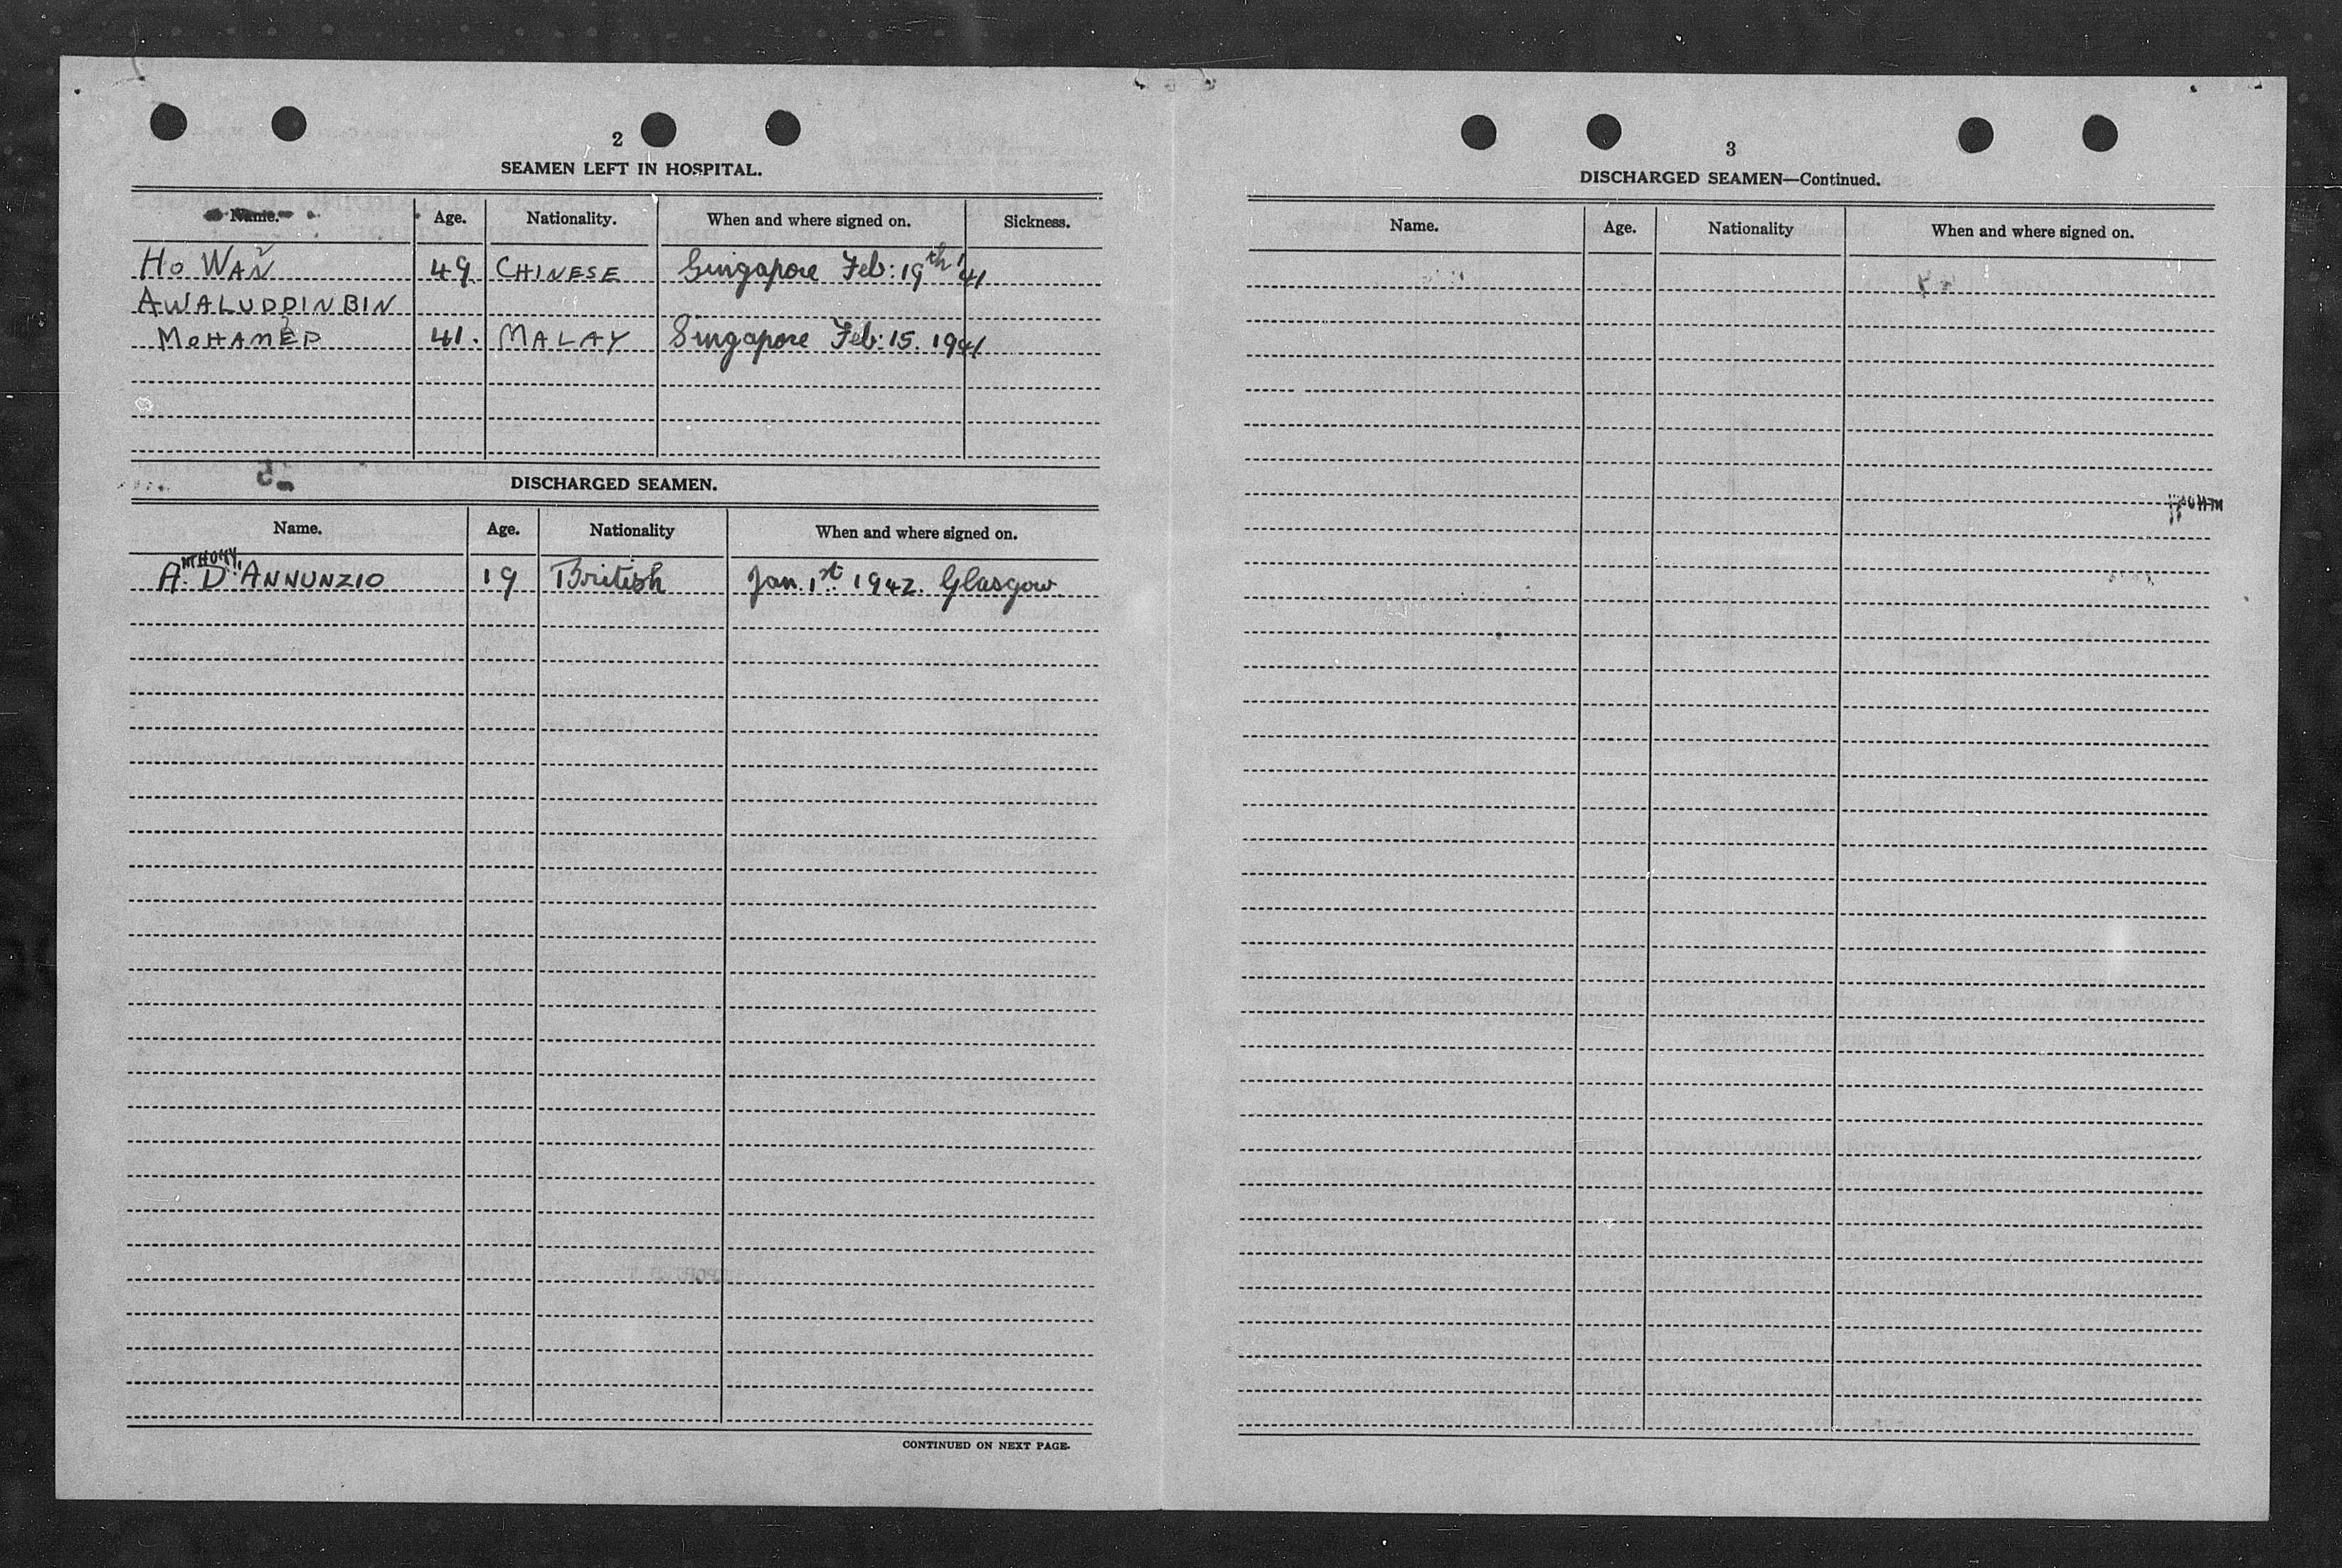 2
SEAMEN LEFT IN HOSPITAL.
Name. Age. Nationality. When and where signed on. Sickness.
HO WAN 49 CHINESE Singapore Feb: 19th '41
AWALUDDIN BIN
MOHAMED 41. MALAY Singapore Feb: 15. 1941
DISCHARGED SEAMEN.
Name. Age. Nationality When and where signed on.
ANTHONY.
A. D'ANNUNZIO 19 British Jan. 1st 1942. Glasgow.
CONTINUED ON NEXT PAGE.
3
DISCHARGED SEAMEN—Continued.
Name. Age. Nationality When and where signed on.